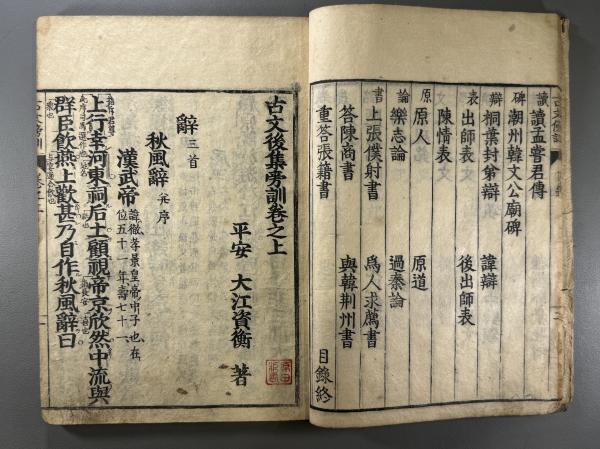 讀 讀孟嘗君傳
碑 潮州韓文公廟碑
辯 桐葉封第辯 諱辯
表 出師表 後出師表
陳情表
原 原人 原道
論 樂志論 過秦論
書 上張僕射書 爲人求薦書
答陳商書 與韓荊州書
重答張籍書 目錄終
古文後集旁訓卷之上
平安 大江資衡 著
辭 三首
秋風辭 并序
漢武帝 諱徹孝景皇帝中子也在
位五十一年壽七十一
上行幸河東祠后土顧視帝京欣然中流與
群臣飲燕上歡甚乃自作秋風辭曰